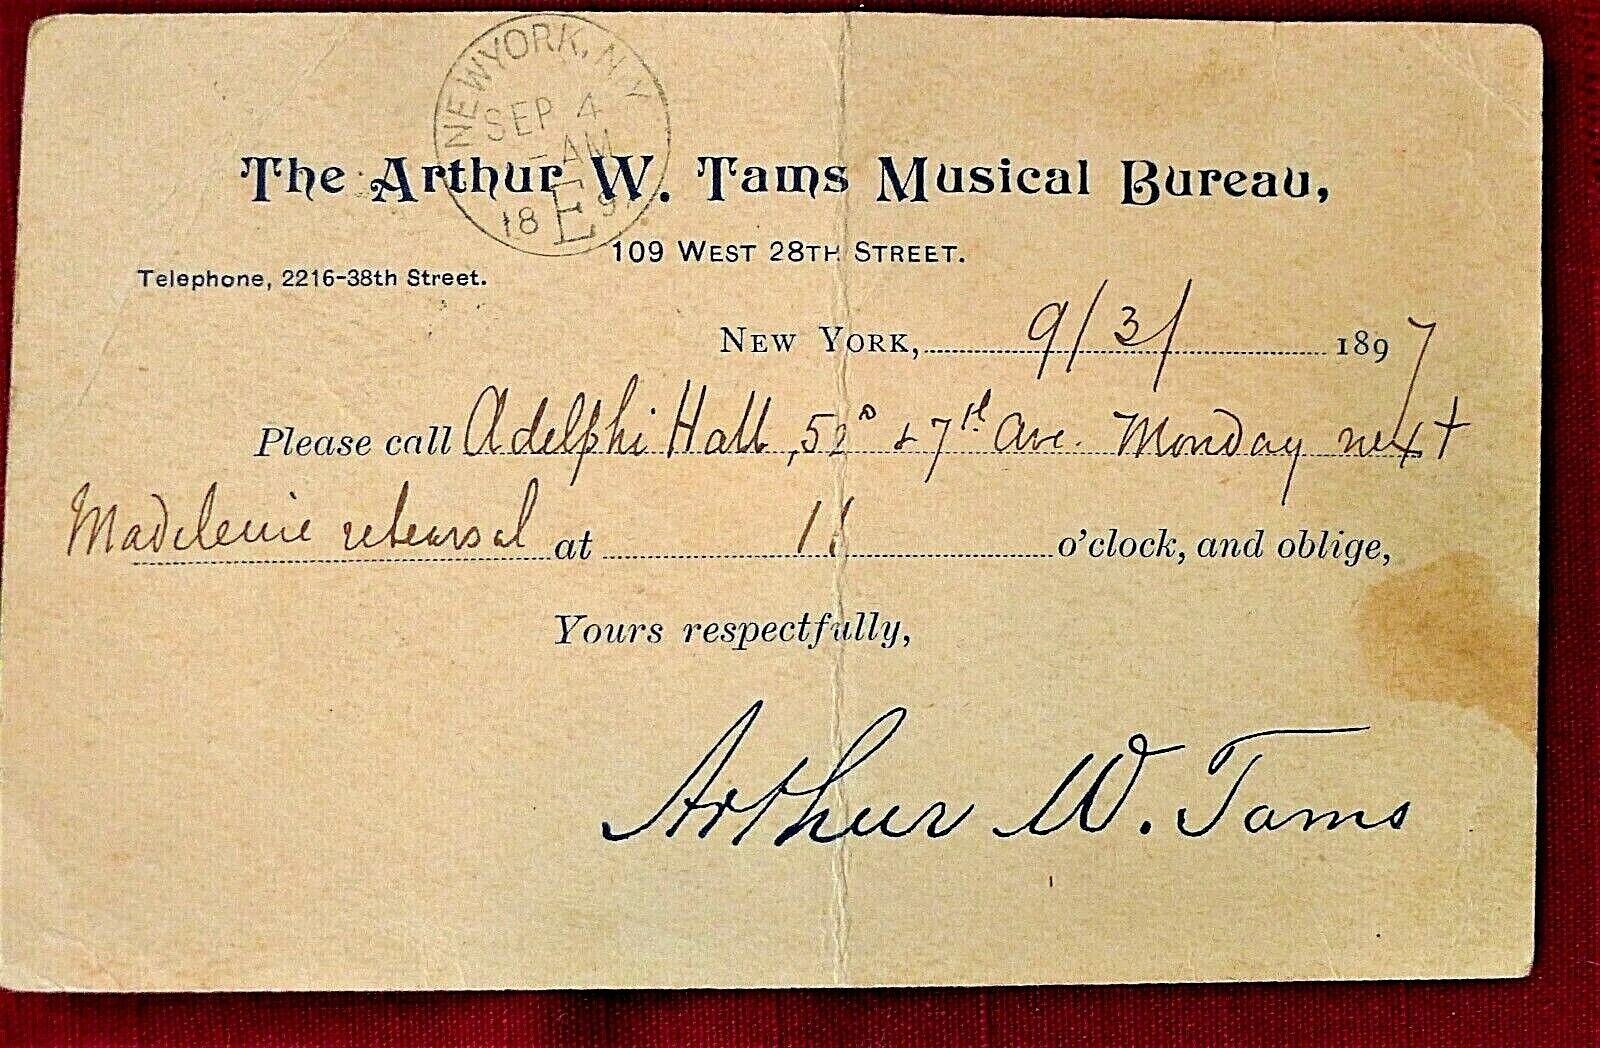 NEW YORK, N.Y.
SEP 4
-AM
18 E 97
The Arthur W. Tams Musical Bureau,
109 WEST 28TH STREET.
Telephone, 2216-38th Street.
NEW YORK, 9/3/ 1897
Please call Adelphi Hall, 52d & 7th Ave. Monday next
Madeleine rehearsal at 11 o'clock, and oblige,
Yours respectfully,
Arthur W. Tams